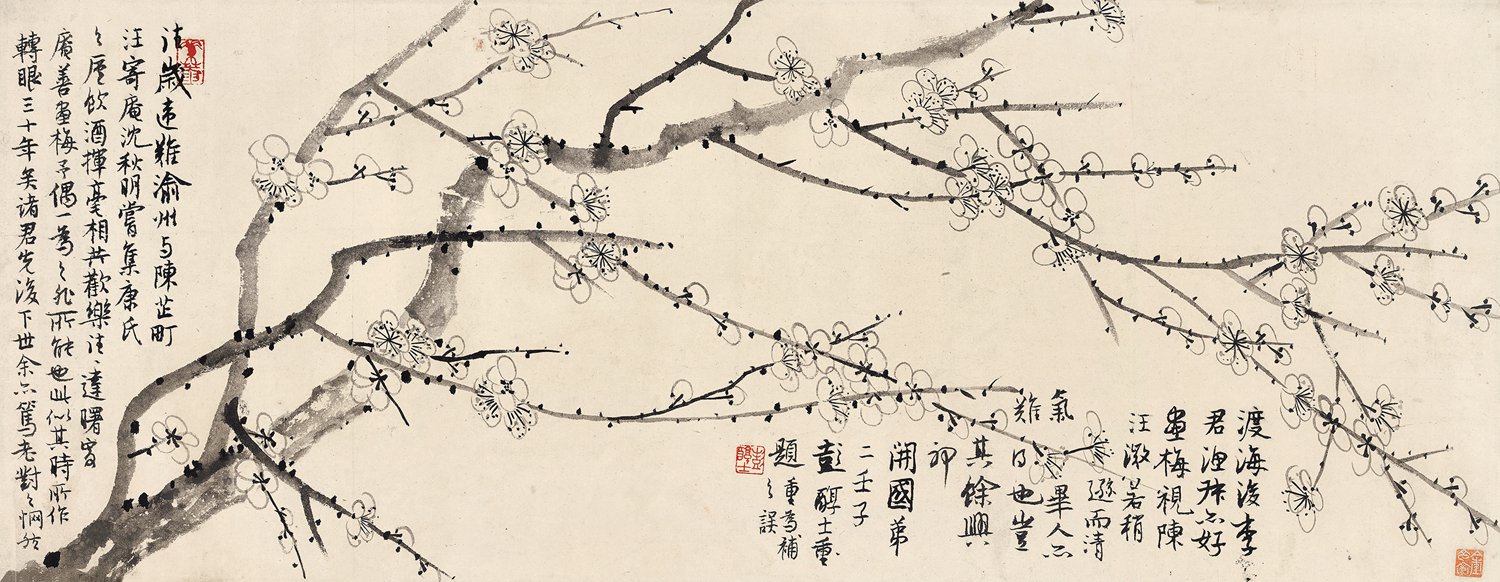 往歲違難渝州与陳芷町
汪寄庵沈秋明嘗集康氏
之廬飲酒揮毫相共歡樂往〻達曙寄
庵善畫梅予偶一為之非所能也此似其時所作
轉眼三十年矣諸君先後下世余亦篤老對之惘然
渡海後李
君漁叔亦好
畫梅視陳
汪若稍
遜而清
氣人亦
難得也豈
其餘興
耶
開國弟
二壬子
彭醇士重
題
重為補
之誤